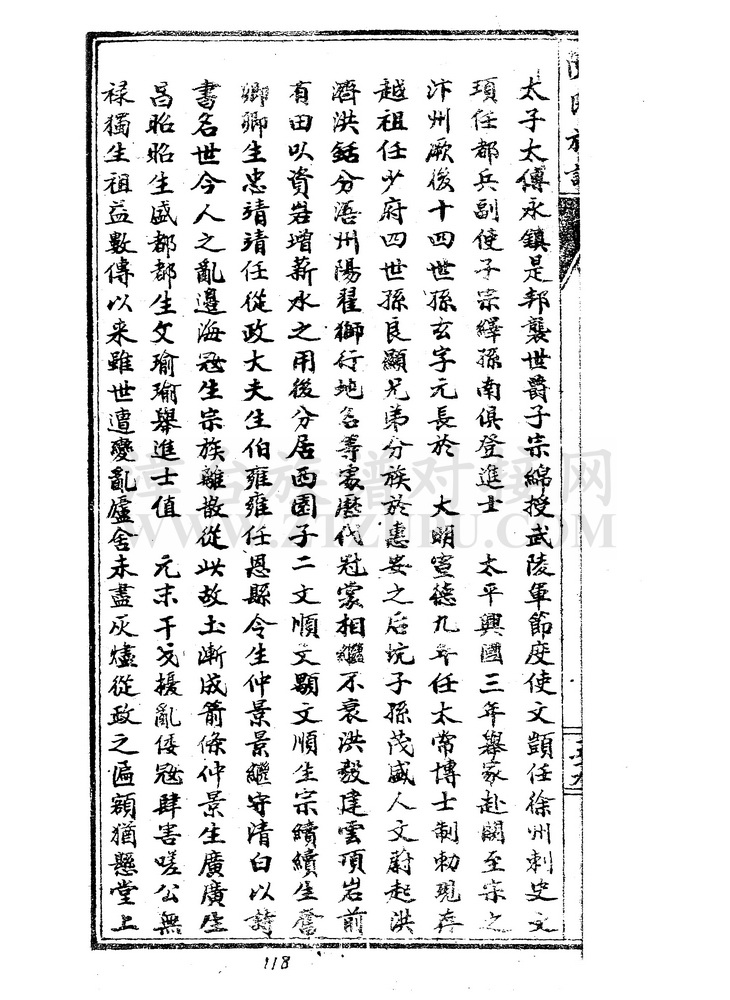 太子太傅永鎮是邦襲世爵子宗綿授武陵軍節度使文顗任徐州刺史文
頊任都兵副使子宗繹孫南俱登進士　太平興國三年舉家赴闕至宗之
汴州厥後十四世孫玄字元長於　大明宣德九年任太常博士制勅現存
越祖任少府四世孫良顯兄弟分族於惠安之后坑子孫茂盛人文蔚起洪
濟洪銛分浯州陽翟獅行地名等處歷代冠裳相繼不衰洪毅建雲頂岩前
有田以資岩增薪水之用後分居西園子二文順文顯文順生宗續續生奮
卿卿生忠靖靖任從政大夫生伯雍雍任恩縣令生仲景景繼守清白以詩
書名世今人之亂邊海寇生宗族離散從此故土漸成箭條仲景生廣廣生
昌昭昭生盛都都生文瑜瑜舉進士值　元末干戈擾亂倭寇肆害嗟公無
祿獨生祖益數傳以来雖世遭變亂廬舍未盡灰燼從政之匾額猶懸堂上
118